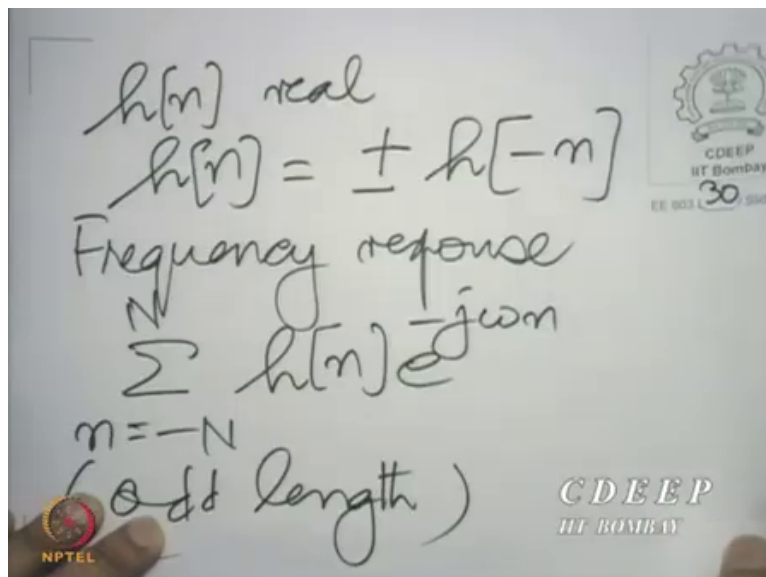 h[n] real
h[n] = ± h[-n]
Frequency reponse
N
Σ h[n] e^-jωn
n=-N
(odd length)
CDEEP
IIT Bombay
30
CDEEP
IIT BOMBAY
NPTEL